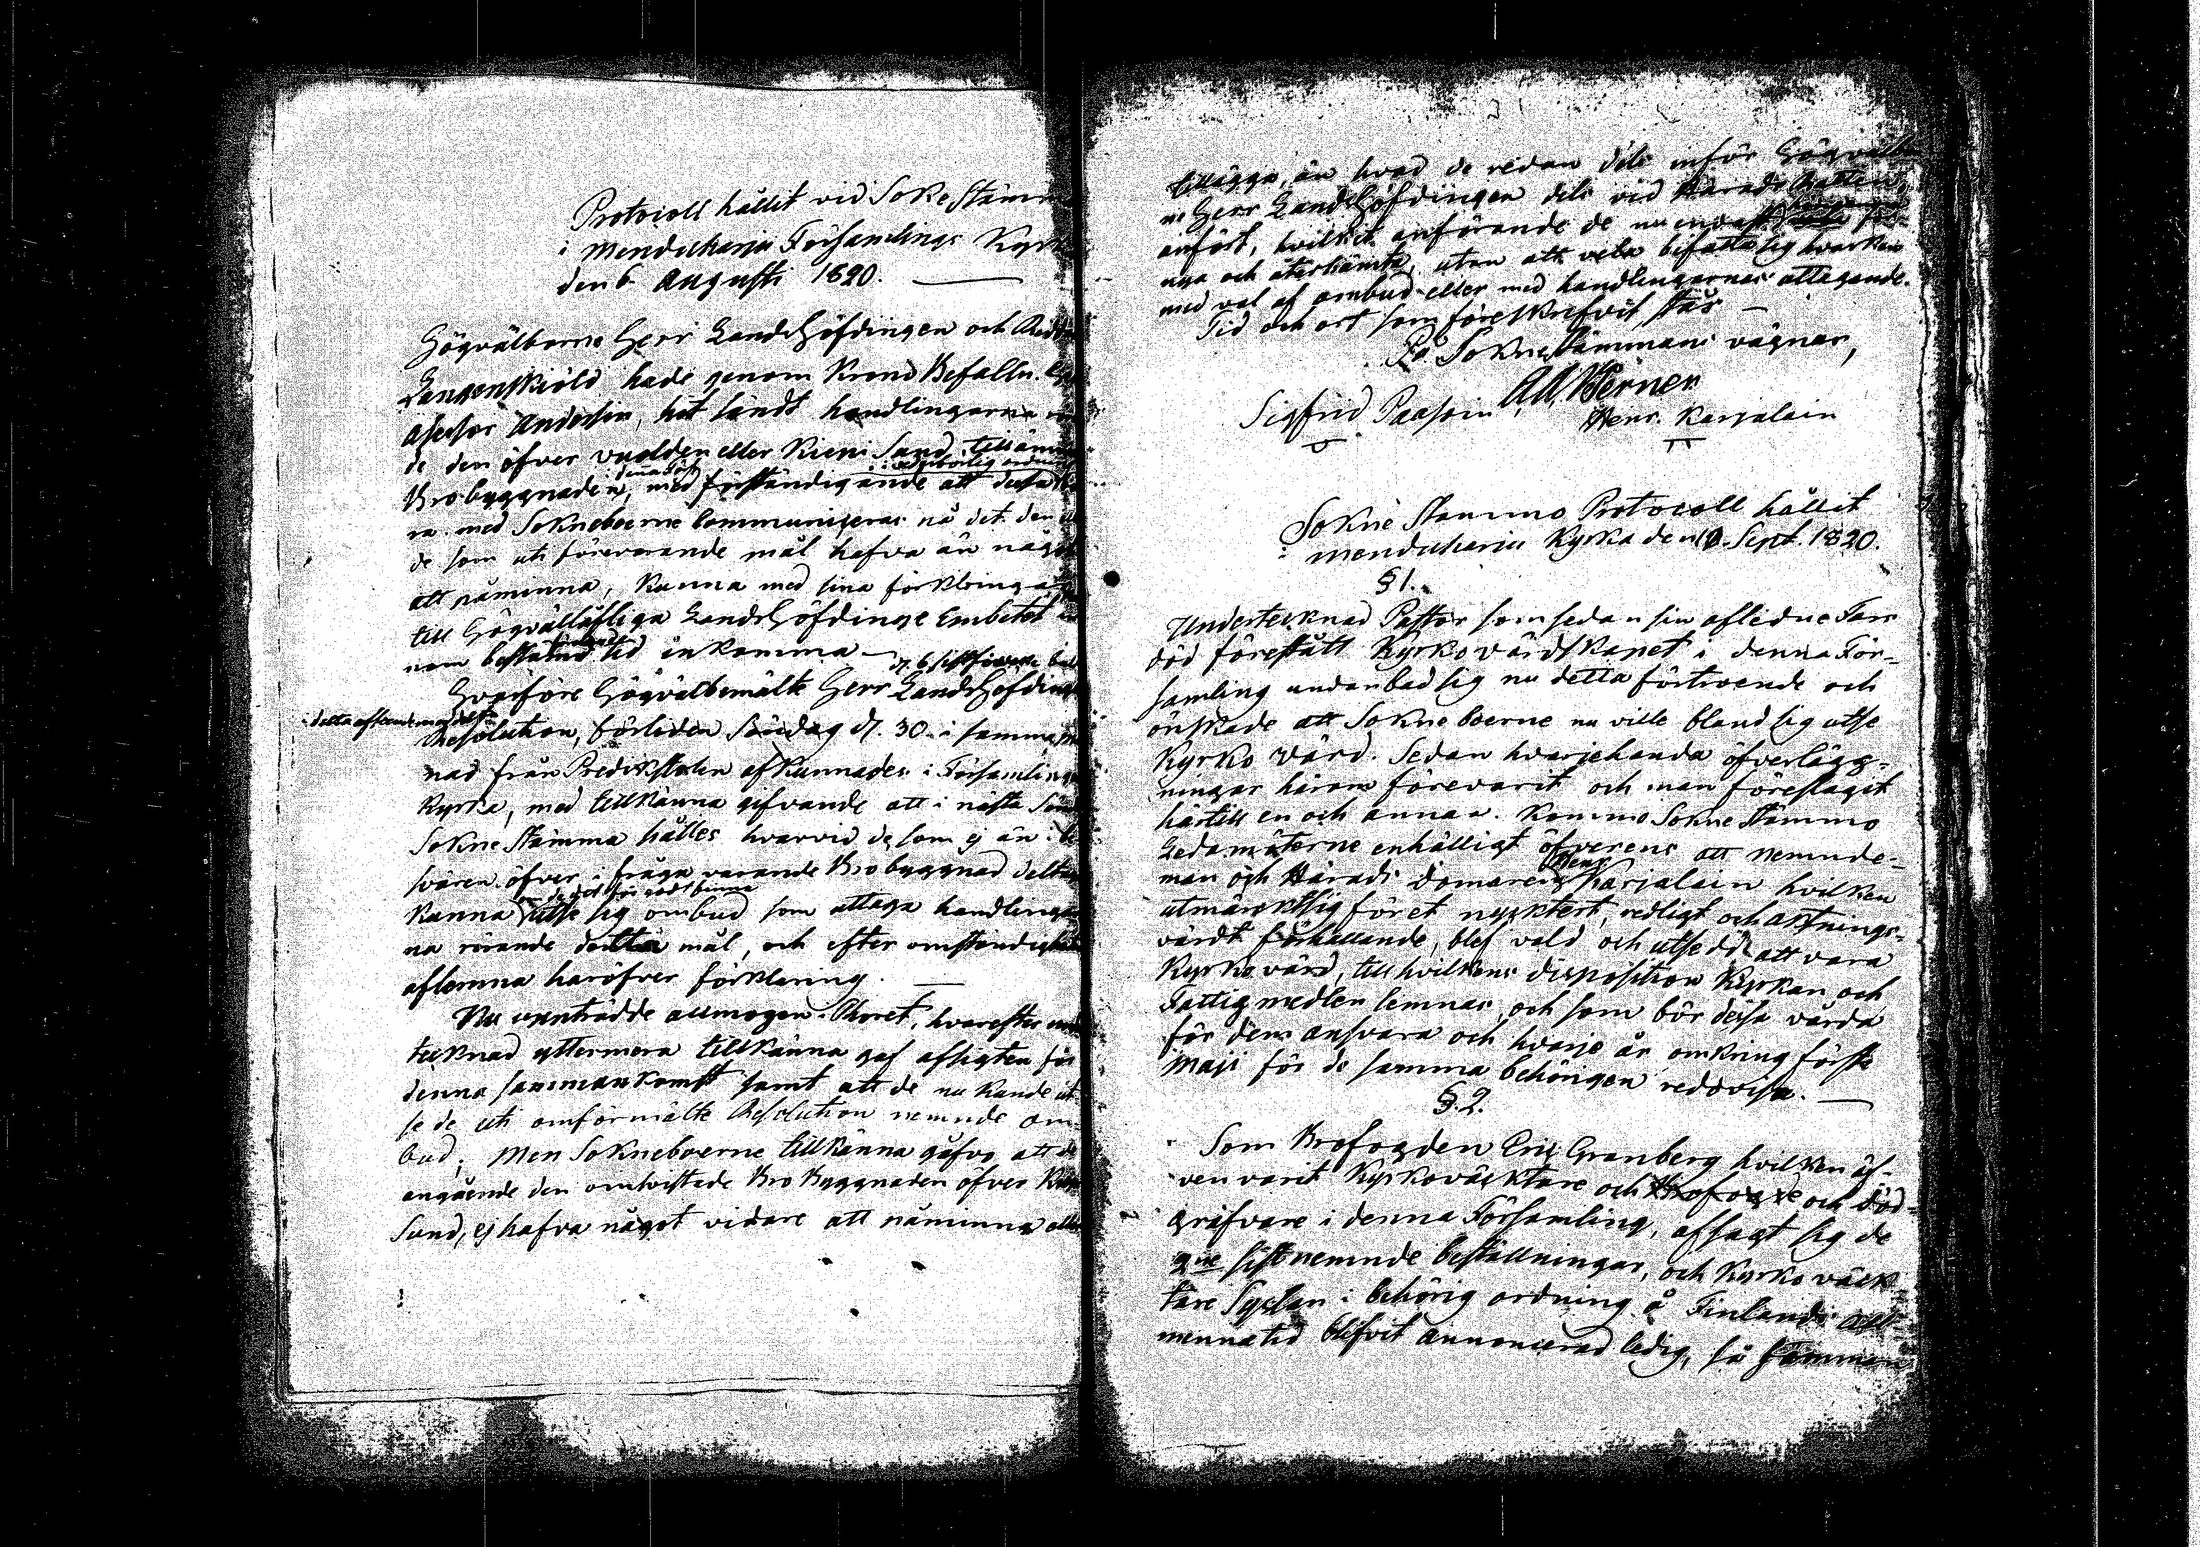 Protocoll hållit vid Sokne Stämm
i Menducharju Församlings Kyrk
den 6 Augusti 1820.
Högvälborne Herr LandsHöfdingen och Ridd
hade genom Krono Befalln.
Asessor hit sändt handlingarna
de den öfver vralden eller Kieni Sund
behörlig ordning
Brobyggnaden, med förständigande att dessa
ra med Sokneboerne Communiceras nå det den
de som uti förevarande mål hafva än något
att påminna, kunna med sina förklaringar
till Högvällofliga LandsHöfdinge Embetet
nom bestämd tid inkomma —
Hvarföre Högvälbemälte Herr LandsHöfding
Resolution, förliden Söndag d. 30 i samma
nad från Predikstolen afkunnades i Församlings
Kyrka, med tillkänna gifvande att i nästa Sön
Sokne Stämma hålles hvarvid de som ej än i be
svären öfver i fråga varande Brobyggnad delta
kunna utse sig ombud som attaga handlingar
na rörande detta mål, och efter omständighet
aflemna häröfver förklaring. —
Nu uppträdde allmogen i Choret, hvarefter und
tecknad yttermera tillkänna gaf afsigten för
denna sammankomst samt att de nu kunde ut
se de uti omförmälte Resolution nemnde om
bud; Men Sokneboerne tillkänna gåfvo att de
angående den omtvistade BroByggnaden öfver Kieni
Sund, ej hafva något vidare att påminna eller
tillägga, än hvad de redan dels inför Högvälbor
ne Herr LandsHöfdingen dels vid Härads Rätten
anfört, hvilket anförande de nu endast för
nya och återhämta, utan att vela befatta sig hvarken
med val af ombud eller med handlingarnas attagande.
Tid och ort som föreskrefvit står —
På Sokne Stämmans vägnar,
A.W. Berner
Sigfrid Paasoin Henr. Karjalain
Sokne Stämmo Protocoll hållit
i Menducharju Kyrka den 10. Sept. 1820.
§ 1.
Undertecknad Pastor som sedan sin aflidne Fars
död förestått Kyrkovärdskapet i denna För-
samling undanbad sig nu detta förtroende och
önskade att Sokneboerne nu ville bland sig utse
Kyrko värd. Sedan hvarjehanda öfverlägg-
ningar härom förevarit och man föreslagit
härtill en och annan. Kommo Sokne Stämmo
Ledamöterne enhälligt öfverens att nemnde-
Henr
man och Härads Domaren Karjalain hvilken
utmärkt sig för et nycktert, redligt och acktnings-
värdt förhållande, blef vald och utsedd att vara
Kyrkovärd, till hvilkens disposition Kyrkan och
Fattigmedlen lemnas, och som bör dessa vårda
för dem ansvara och hvarje år omkring förste
Maji för de samma behörigen redovisa. —
§. 2.
Som Brofogden Eric Granberg hvilken äf-
ven varit Kyrkoväcktare och Brofogde och död-
gräfvare i denna Församling, afsagt sig de
2ne sistnemnde beställningar, och Kyrko väck
tare Syslan i behörig ordning å Finlands All
menna tid blifvit annoncerad ledig, så